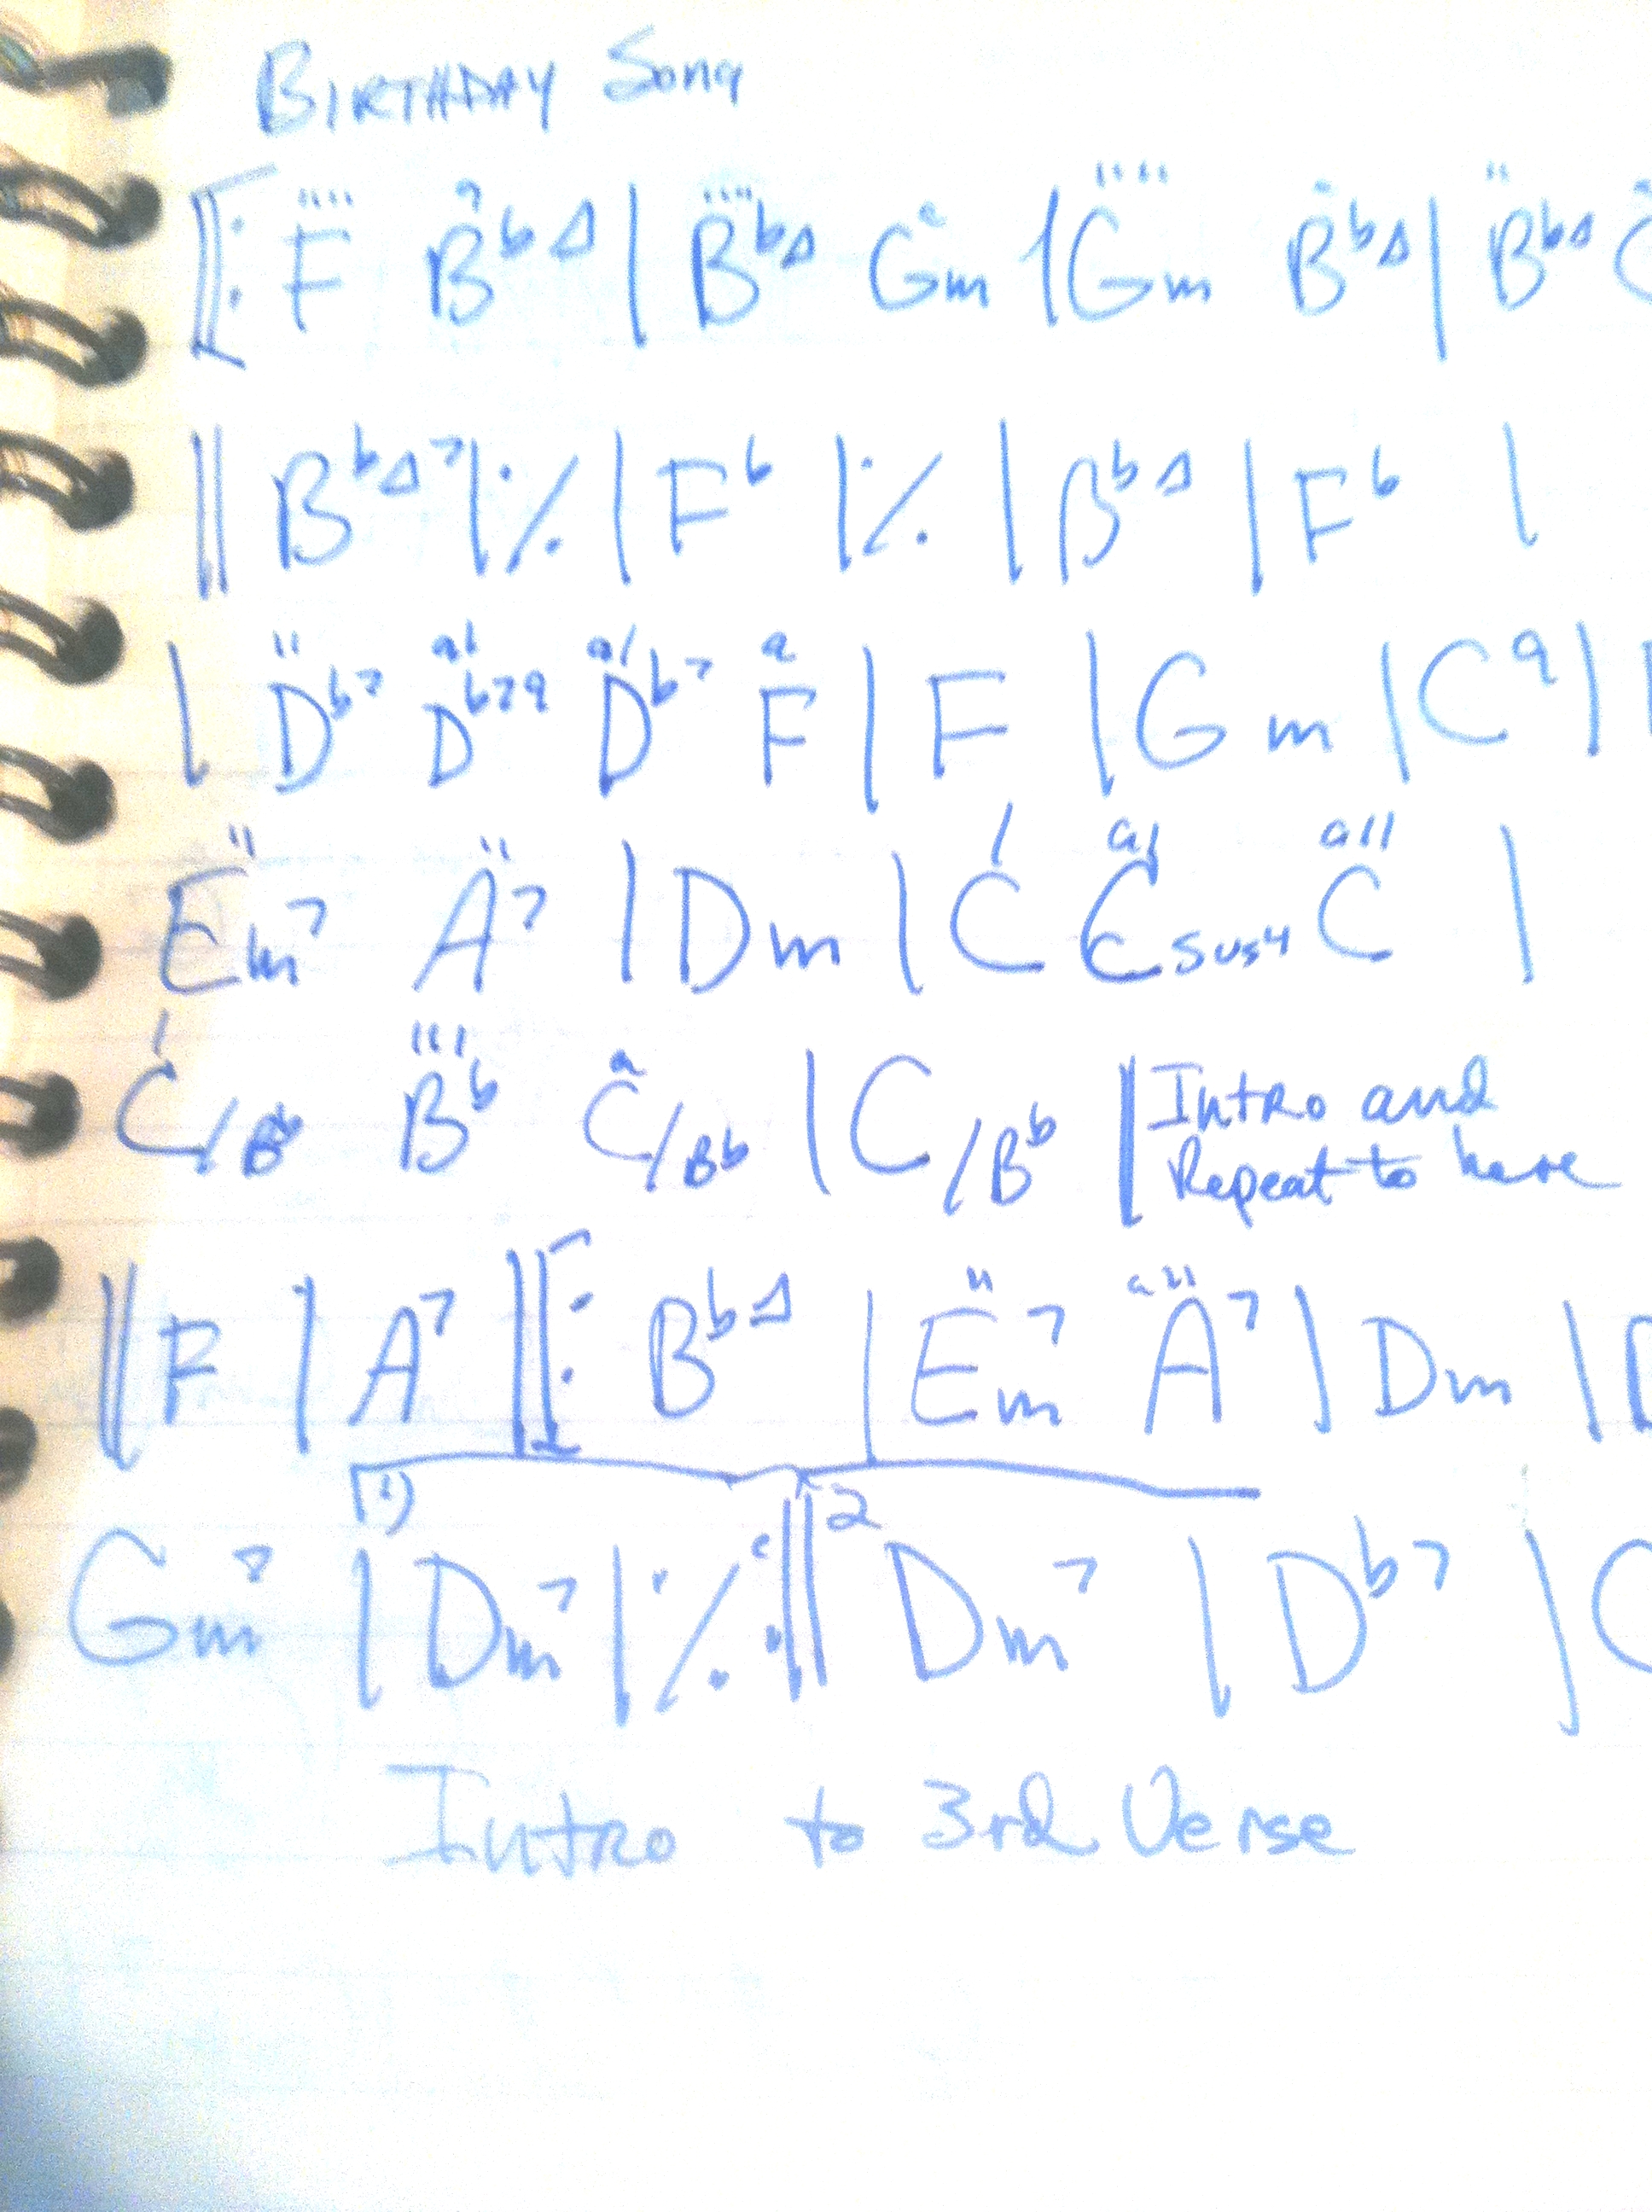 BIRTHDAY Song
‖: F B♭Δ | B♭Δ Gm | Gm B♭Δ | B♭Δ
‖ B♭Δ7 | ٪ | F6 | ٪ | B♭Δ | F6 |
| D♭7 D♭79 D♭7 F | F | Gm | C9 |
Em7 A7 | Dm | C Csus4 C |
C/B♭ B♭ C/B♭ | C/B♭ ‖ Intro and
Repeat to here
‖ F | A7 ‖: B♭Δ | Em7 A7 | Dm |
1) 2
Gm7 | Dm7 | ٪ :‖ Dm7 | D♭7 | C
Intro to 3rd Verse